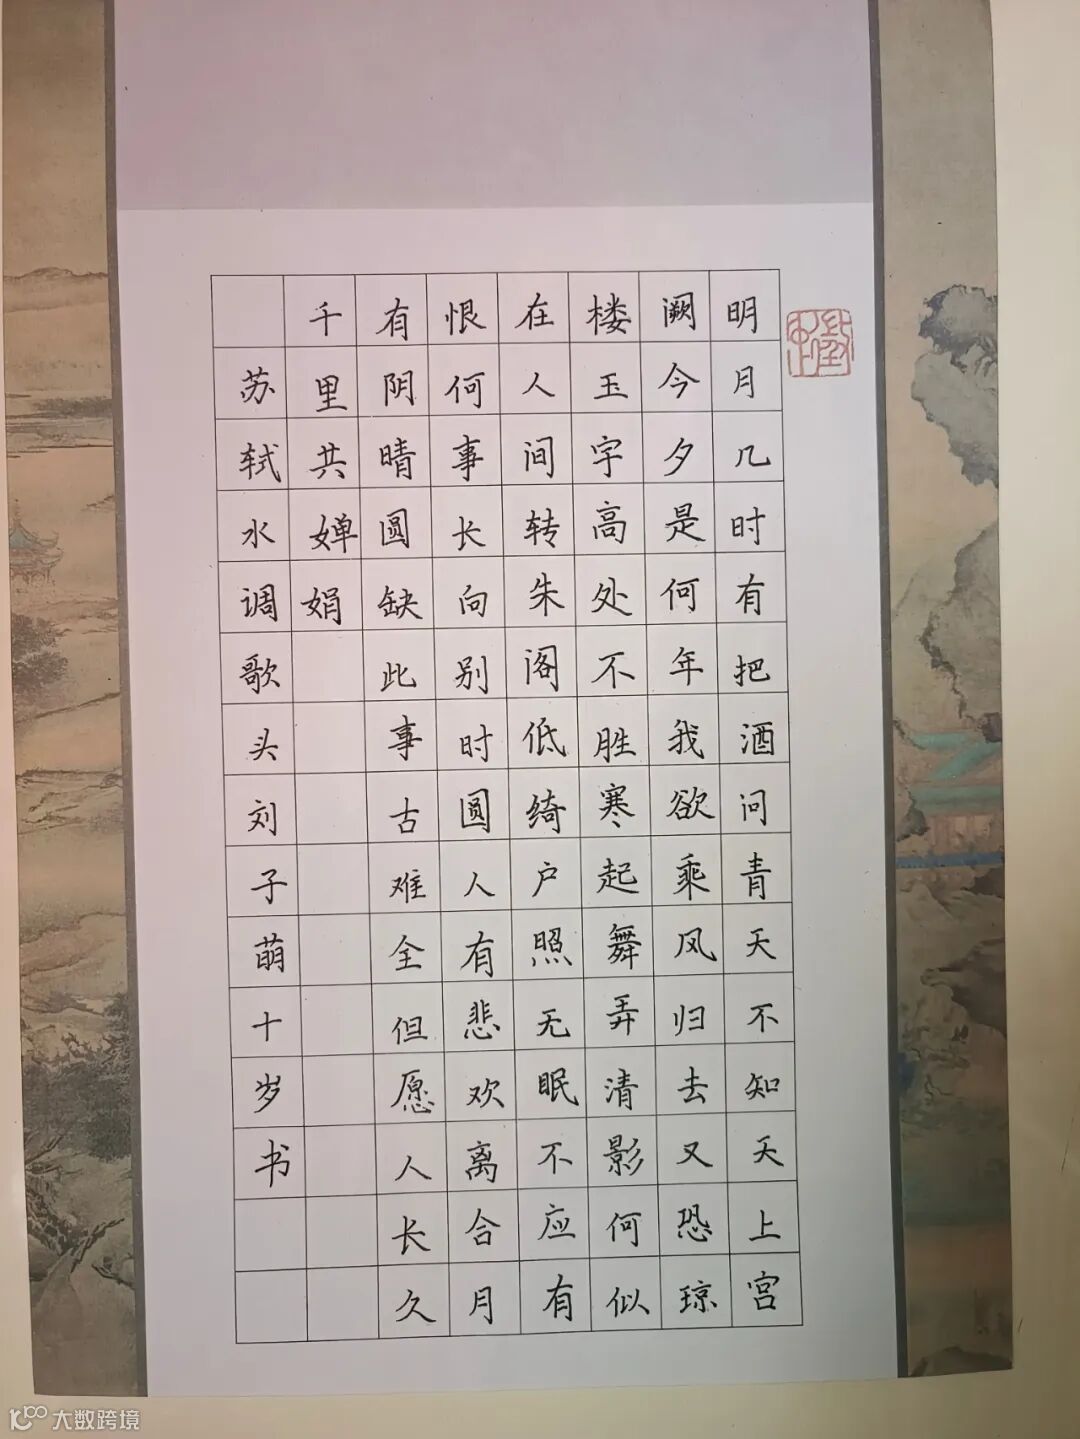 明月几时有把酒问青天不知天上宫
阙今夕是何年我欲乘风归去又恐琼
楼玉宇高处不胜寒起舞弄清影何似
在人间转朱阁低绮户照无眠不应有
恨何事长向别时圆人有悲欢离合月
有阴晴圆缺此事古难全但愿人长久
千里共婵娟
苏轼水调歌头刘子萌十岁书
大数跨境